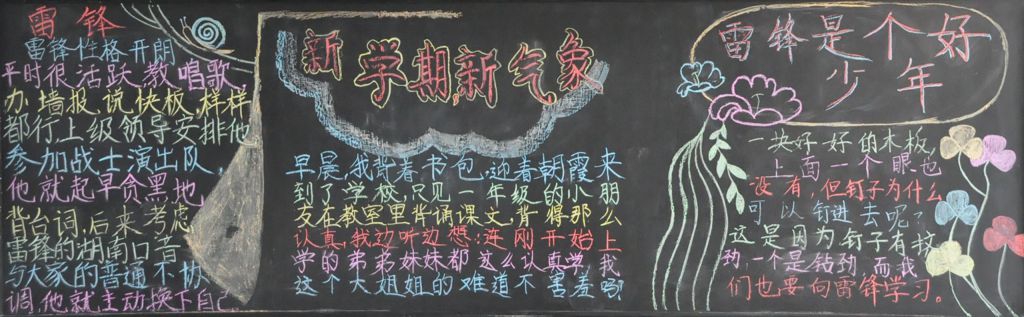 雷锋
雷锋性格开朗
平时很活跃教唱歌
办墙报,说快板,样样
都行上级领导安排他
参加战士演出队,
他就起早贪黑地
背台词,后来考虑
雷锋的湖南口音
与大家的普通不协
调,他就主动换下自己
新学期,新气象
早晨,我背着书包,迎着朝霞来
到了学校,只见一年级的小朋
友在教室里背诵课文,背得那么
认真,我边听边想:连刚开始上
学的弟弟妹妹都这么认真学,我
这个大姐姐的难道不害羞吗
雷锋是个好
少年
一块好好的木板,
上面一个眼也
没有,但钉子为什么
可以钉进去呢?
这是因为钉子有挤
一个是钻到,而我
们也要向雷锋学习。